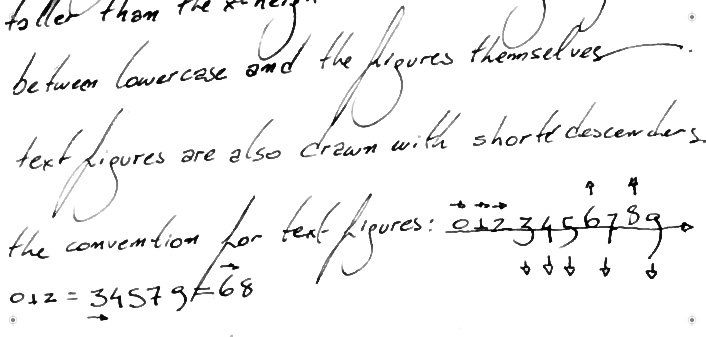 taller than the x-heigh
between lowercase and the figures themselves.
text figures are also drawn with short descenders
the convention for text figures: 0123456789
012 = 34579 = 68